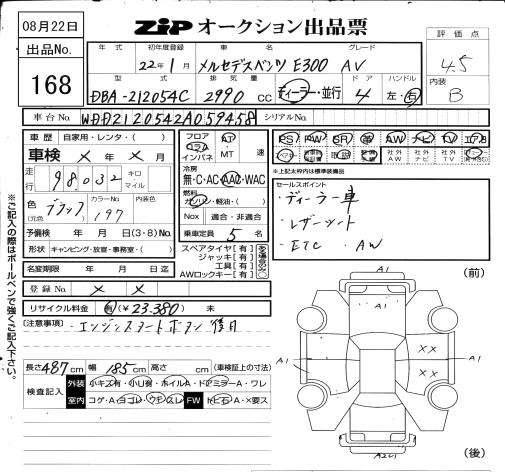 08月22日
ZIP オークション出品票
出品No.
168
評価点
4.5
内装
B
年式 初年度登録 車名 グレード
22年1月 メルセデスベンツ E300 AV
型式 排気量 ドア ハンドル
DBA-212054C 2990 CC ディーラー・並行 4 左・右
車台No. WDD2120542A059458 シリアルNo.
車歴 自家用・レンタ・( )
車検 × 年 × 月
走行 98,032 キロ マイル
色 ブラック (元色) カラーNo. 197 内装色
予備検 年 月 日(3・8)No.
形状 キャンピング・放宣・事務室・( )
名変期限 年 月 日迄
登録No. × ×
リサイクル料金 有(¥23,380) 未
フロア コラム インパネ AT・MT 速
冷房 無・C・AC・AAC・WAC
燃料 ガソリン・軽油・( )
Nox 適合・非適合
乗車定員 5 名
スペアタイヤ[有]
ジャッキ[有]
工具[有]
AWロックキー[有]
PS PW SR 革 AW ナビ TV エアB
社外AW 社外ナビ 社外TV
*上記太枠内は標準装備品
セールスポイント
・ディーラー車
・レザーシート
・ETC ・AW
(注意事項)・エンジンスタートボタン 傷有
長さ487cm 幅185cm 高さ cm (車検証上の寸法)
検査記入 外装 小キズ有・小U有・ホイルA・ドアミラーA・ワレ
室内 コゲ・A・ヨゴレ・ウキ・スレ FW トビ石A・X要ス
※ご記入の際はボールペンで強くご記入下さい。
A1
(前)
A1
××
A1
××
A1
(後)